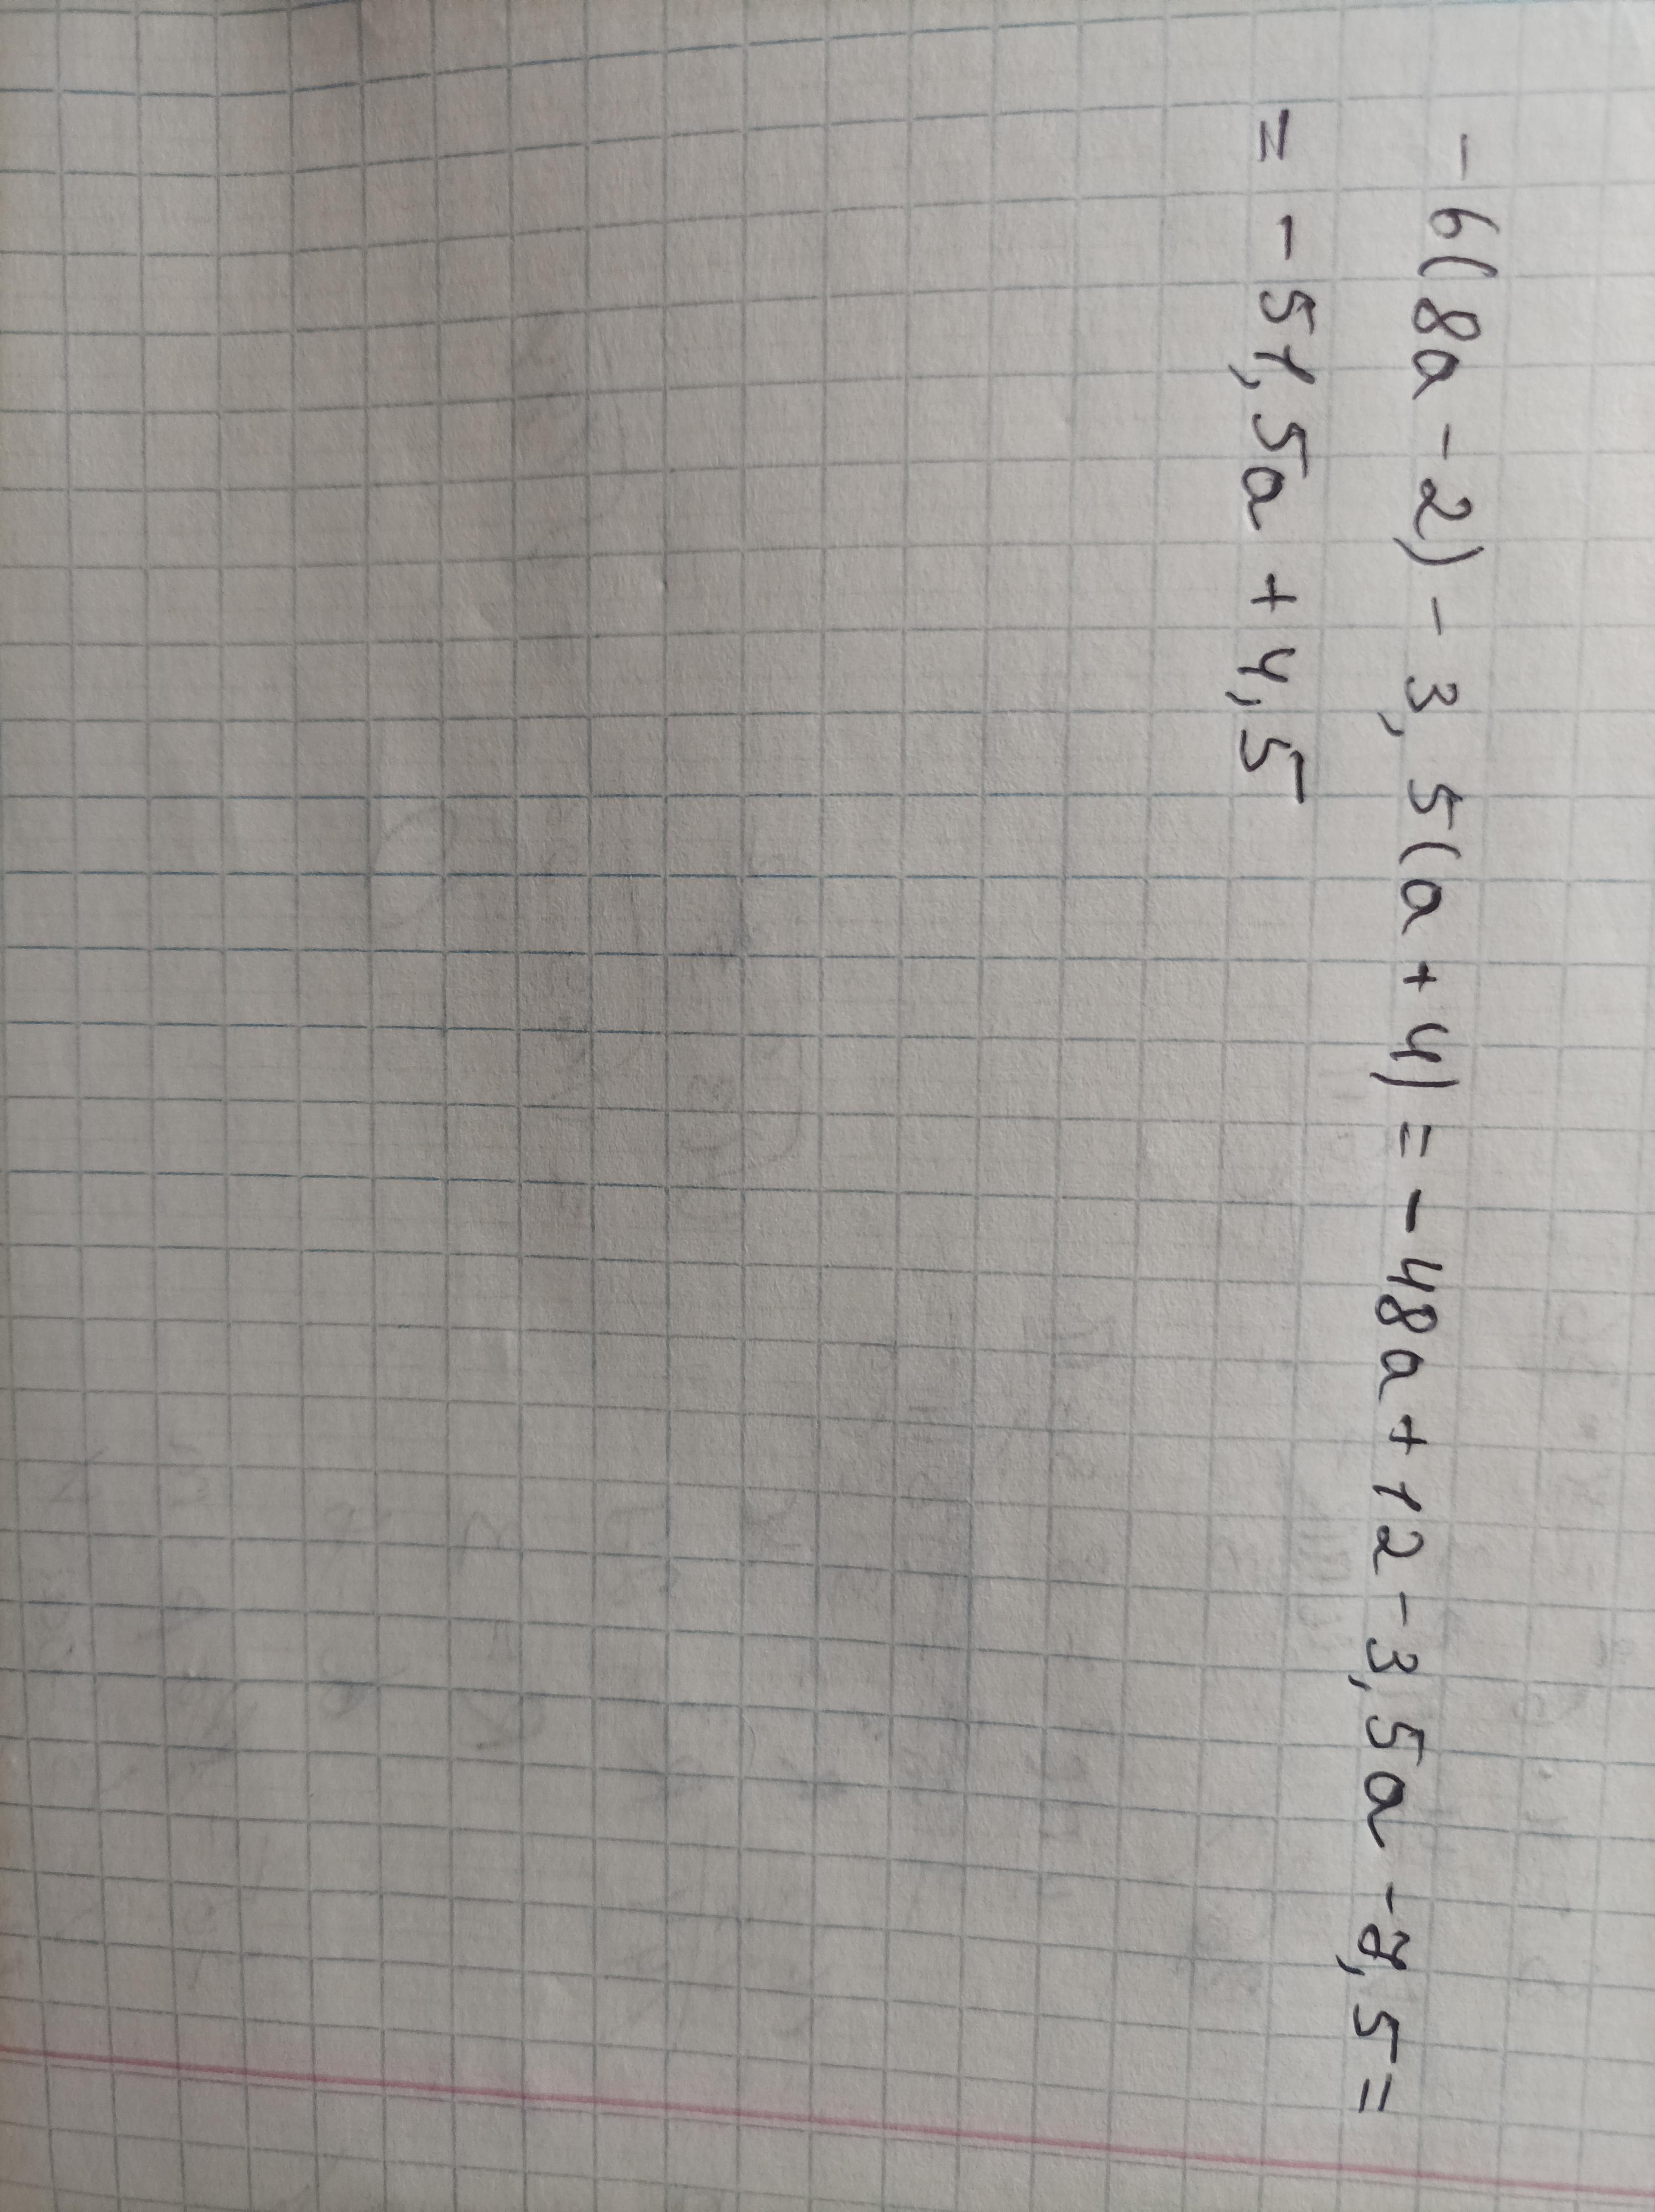 - 6(8a - 2) - 3,5(a + 4) = - 48a + 12 - 3,5a - 7,5 =
= - 51,5a + 4,5